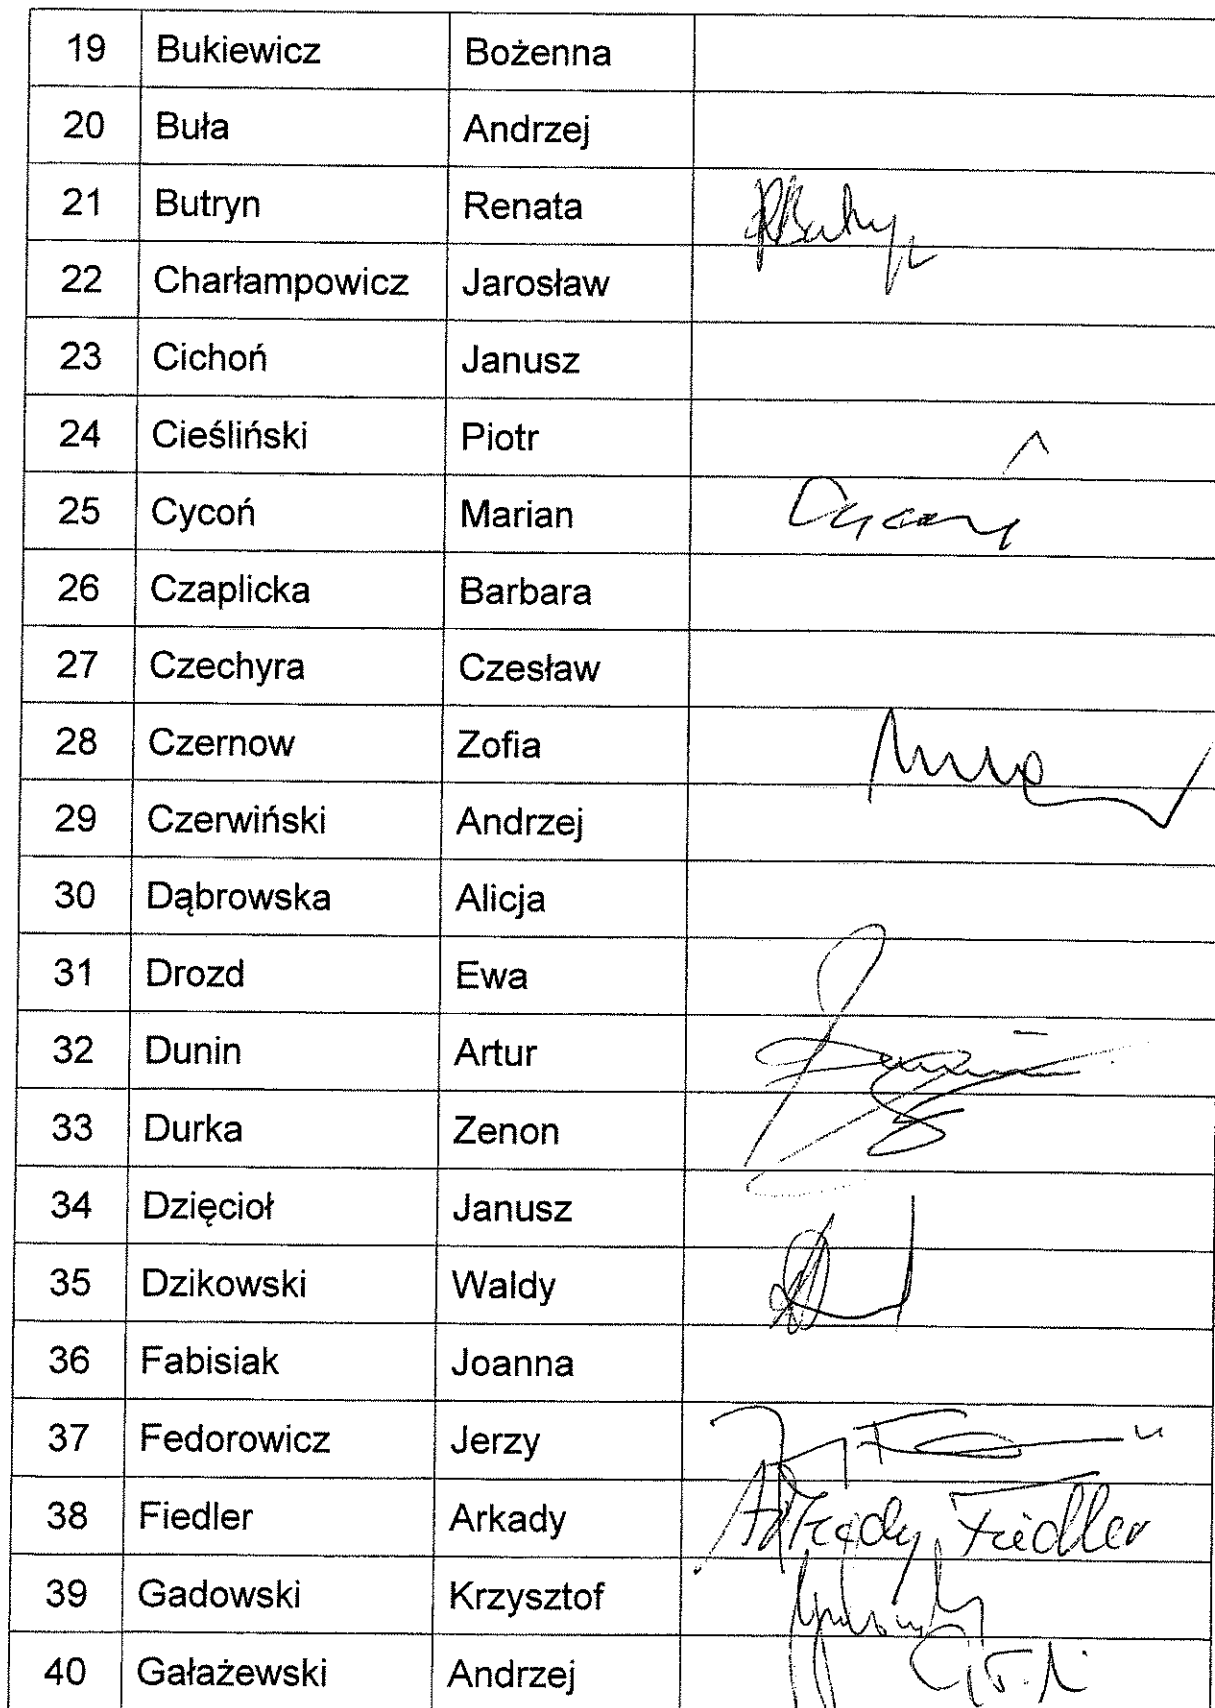 19 Bukiewicz Bożenna
20 Buła Andrzej
21 Butryn Renata
22 Charłampowicz Jarosław
23 Cichoń Janusz
24 Cieśliński Piotr
25 Cycoń Marian Cycoń
26 Czaplicka Barbara
27 Czechyra Czesław
28 Czernow Zofia
29 Czerwiński Andrzej
30 Dąbrowska Alicja
31 Drozd Ewa
32 Dunin Artur
33 Durka Zenon
34 Dzięcioł Janusz
35 Dzikowski Waldy
36 Fabisiak Joanna
37 Fedorowicz Jerzy
38 Fiedler Arkady Arkady Fiedler
39 Gadowski Krzysztof
40 Gałażewski Andrzej